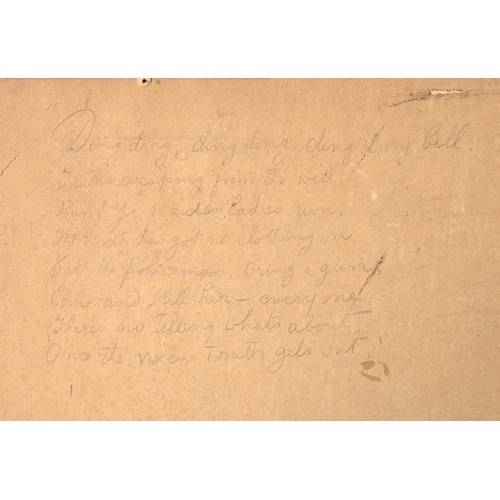 "Ding dong, ding dong, ding dong bell.
Truth's escaping from the well.
Run! Ye maiden ladies, run,
The truth has got no clothing on,
Call the policeman, bring a gun,
Come and kill her – everyone,
There's no telling what's about.
Once the vixen Truth gets out."